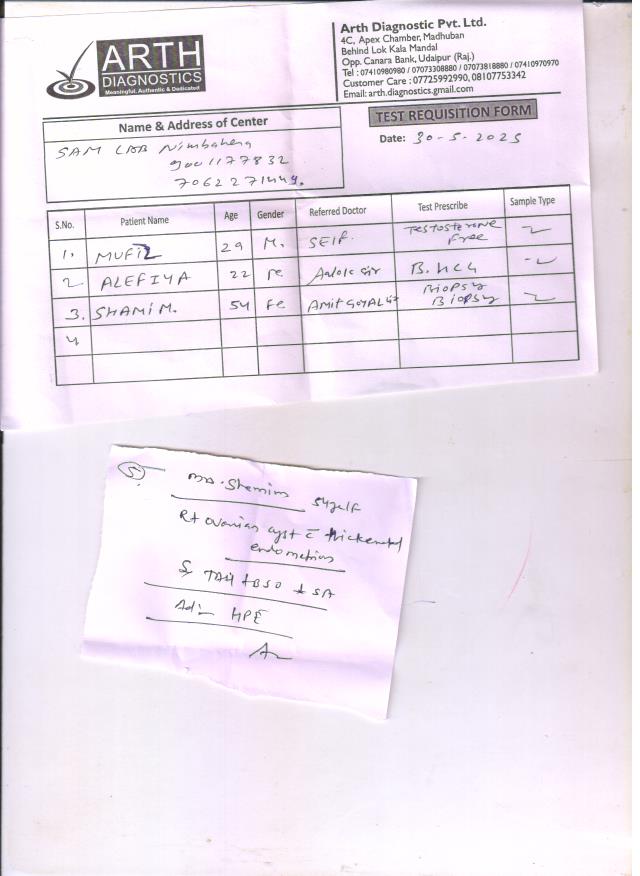 ARTH
DIAGNOSTICS
Meaningful, Authentic & Dedicated
Arth Diagnostic Pvt. Ltd.
4C, Apex Chamber, Madhuban
Behind Lok Kala Mandal
Opp. Canara Bank, Udaipur (Raj.)
Tel : 07410980980 / 07073308880 / 07073818880 / 07410970970
Customer Care : 07725992990, 08107753342
Email: arth.diagnostics.gmail.com
TEST REQUISITION FORM
Date: 30-5-2025
Name & Address of Center
SAM LAB Nimbahera
9001177832
7062271449.
S.No. Patient Name Age Gender Referred Doctor Test Prescribe Sample Type
1. MUFIZ 29 M. SElf. Testosterone Free
2 ALEFIYA 22 Fe Aalok sir B. HCG
3. SHAMIM. 54 Fe AMIT GOYAL Sir Biopsy Biopsy
4
5
Mrs. Shamim 54y/F
Rt ovarian cyst c̄ thickened
endometrium
TAH + BSO + SA
Adv HPE